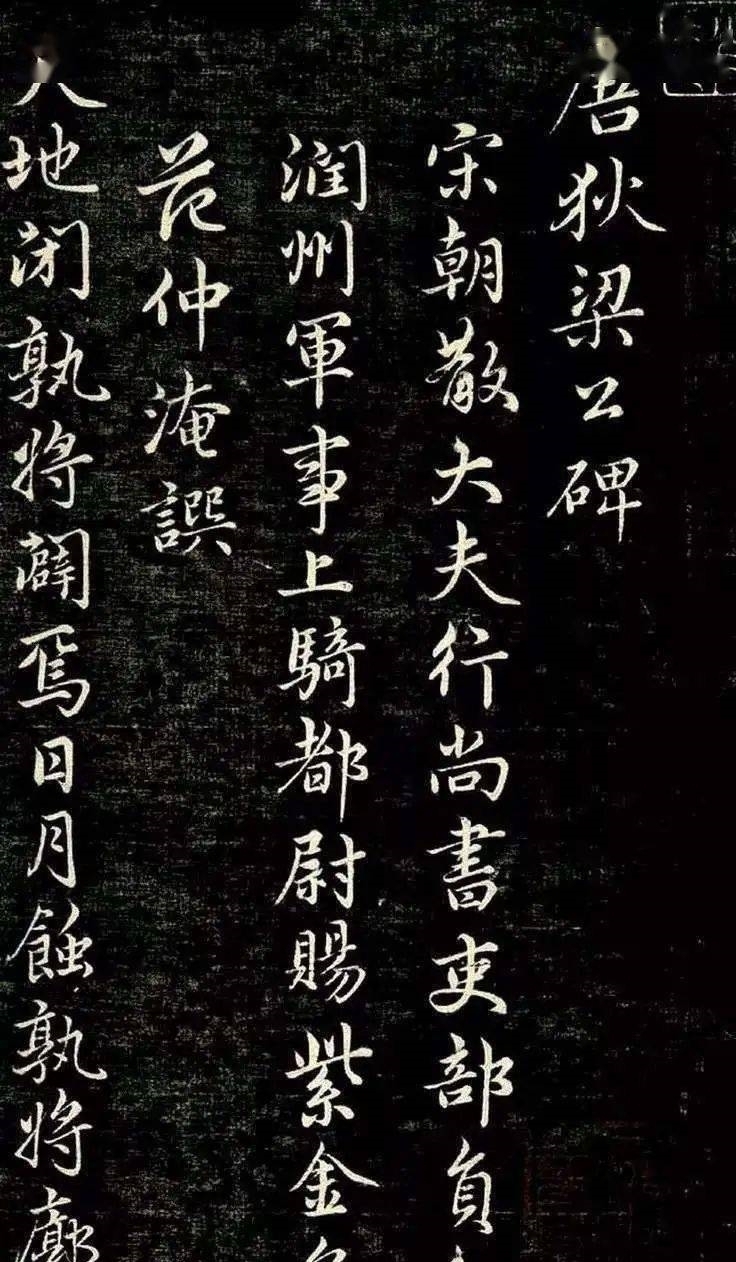 唐狄梁公碑
宋朝散大夫行尚書吏部員
潤州軍事上騎都尉賜紫金
范仲淹譔
天地閉孰將闢焉日月蝕孰將廓